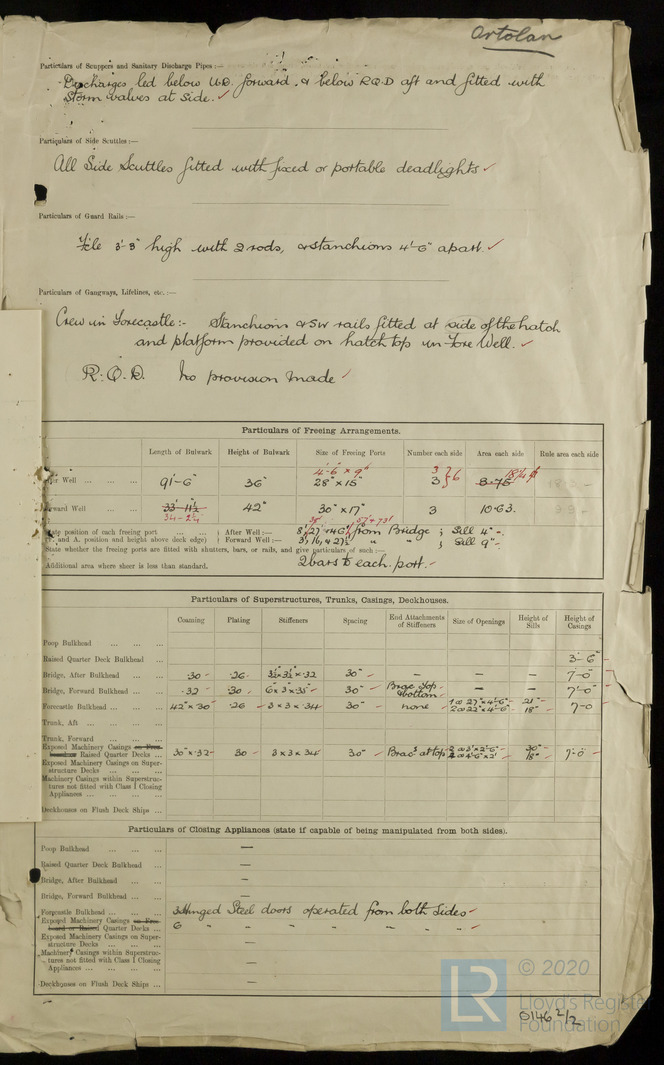 Ortolan
Particulars of Scuppers and Sanitary Discharge Pipes :—
Discharges led below U.D. forward, & below R.Q.D aft and fitted with
Storm valves at side. ✓
Particulars of Side Scuttles :—
All Side Scuttles fitted with fixed or portable deadlights ✓
Particulars of Guard Rails :—
3'-3" high with 2 rods, & stanchions 4'-6" apart. ✓
Particulars of Gangways, Lifelines, etc. :—
Crew in Forecastle :- Stanchions & SW rails fitted at side of the hatch
and platform provided on hatch top in Fore Well. ✓
R.Q.D. No provision made ✓
Particulars of Freeing Arrangements.
Length of Bulwark Height of Bulwark Size of Freeing Ports Number each side Area each side Rule area each side
4'-6" x 9" 3 } 6
Well ... ... ... 91'-6" 36" 28" x 15" 3 8.75
Well ... ... 33'-11½ 42" 30" x 17" 3 10.63
34-2¼
position of each freeing port ... ... } After Well :— from Bridge ; Sill 4" -
and A. position and height above deck edge) } Forward Well :— 3, 16, & 27½ " " ; Sill 9" -
State whether the freeing ports are fitted with shutters, bars, or rails, and give particulars of such :—
2 bars to each port. -
Additional area where sheer is less than standard.
Particulars of Superstructures, Trunks, Casings, Deckhouses.
Coaming Plating Stiffeners Spacing End Attachments of Stiffeners Size of Openings Height of Sills Height of Casings
Poop Bulkhead ... ... ...
Raised Quarter Deck Bulkhead ... 3'-6"
Bridge, After Bulkhead ... ... .30 - .26 - 3½ x 3½ x .32 30" - — — — 7'-0"
Bridge, Forward Bulkhead ... ... .32 .30 6 x 3 x .35 30" Brac. top bottom — — 7'-0"
Forecastle Bulkhead ... ... ... 42" x 30 .26 3 x 3 x .34 30" none 1 @ 27" x 4'-6" 2 @ 22" x 4'-6" 21" 18" 7-0
Trunk, Aft ... ... ... ...
Trunk, Forward ... ... ...
Exposed Machinery Casings on Free-
board or Raised Quarter Decks ... 30" x .32 30 3 x 3 x 34 30" Brac at top 2 @ 3' x 2'-6" 30" 18" 7'-0"
Exposed Machinery Casings on Super-
structure Decks ... ... ...
Machinery Casings within Superstruc-
tures not fitted with Class I Closing
Appliances ... ... ... ...
Deckhouses on Flush Deck Ships ...
Particulars of Closing Appliances (state if capable of being manipulated from both sides).
Poop Bulkhead ... ... ... —
Raised Quarter Deck Bulkhead ... —
Bridge, After Bulkhead ... ... —
Bridge, Forward Bulkhead ... ... —
Forecastle Bulkhead ... ... ... 3 Hinged Steel doors operated from both Sides ✓
Exposed Machinery Casings on Free-
board or Raised Quarter Decks ... 6 " " " " " " "
Exposed Machinery Casings on Super-
structure Decks ... ... ... —
Machinery Casings within Superstruc-
tures not fitted with Class I Closing
Appliances ... ... ... ... —
Deckhouses on Flush Deck Ships ... —
LR © 2020
Lloyd's Register
Foundation
0146 2/2